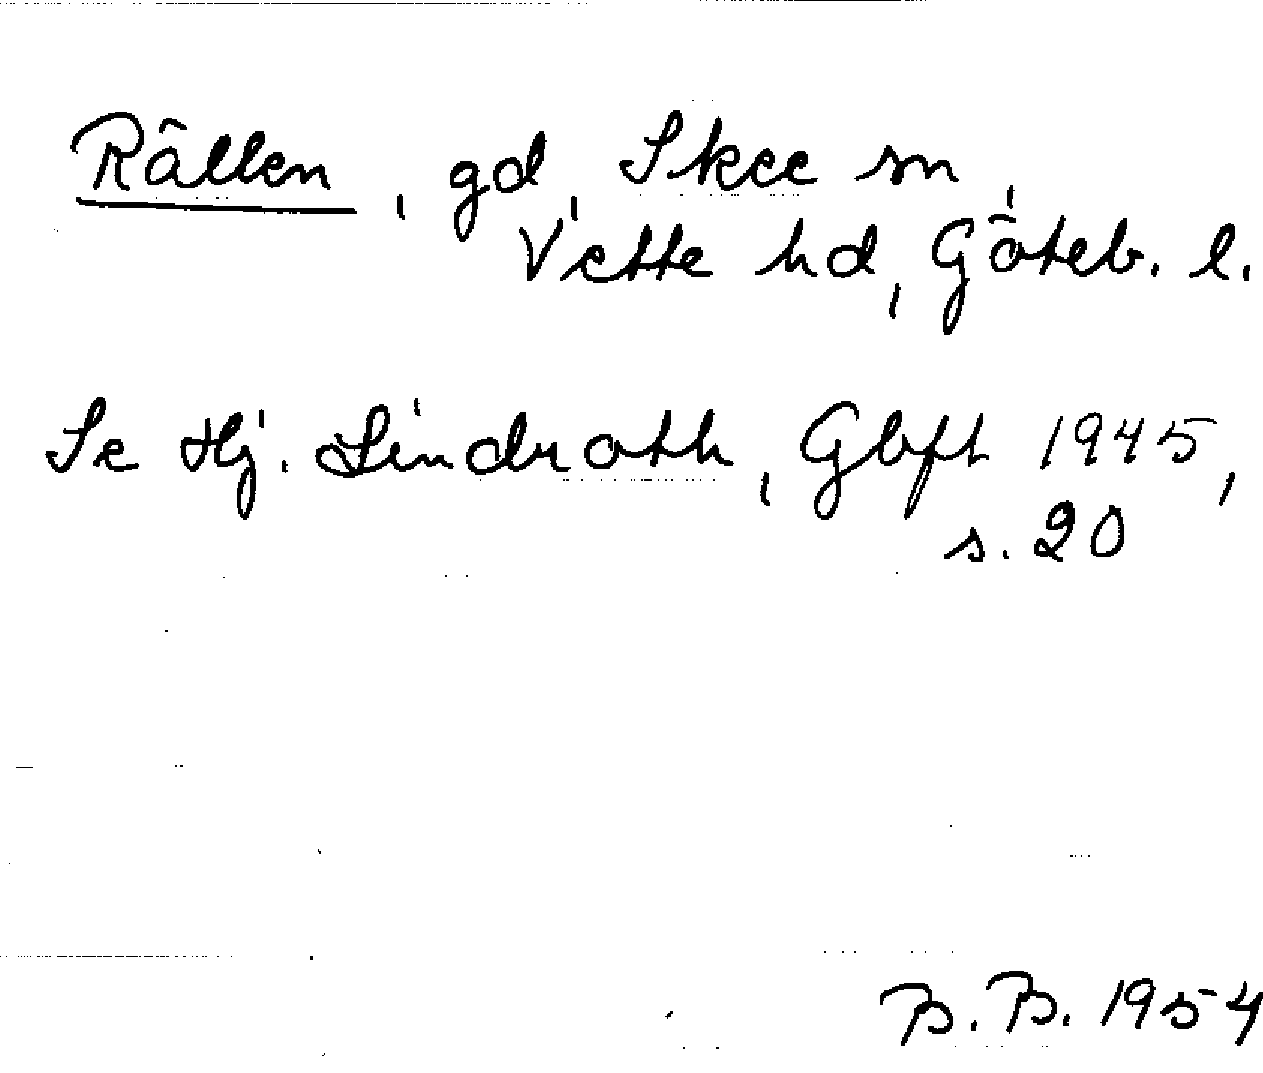 Rällen, gd, Skee sn,
Vette hd, Göteb. l.
Se Hj. Lindroth, Gbft 1945,
s. 20
B. B. 1954